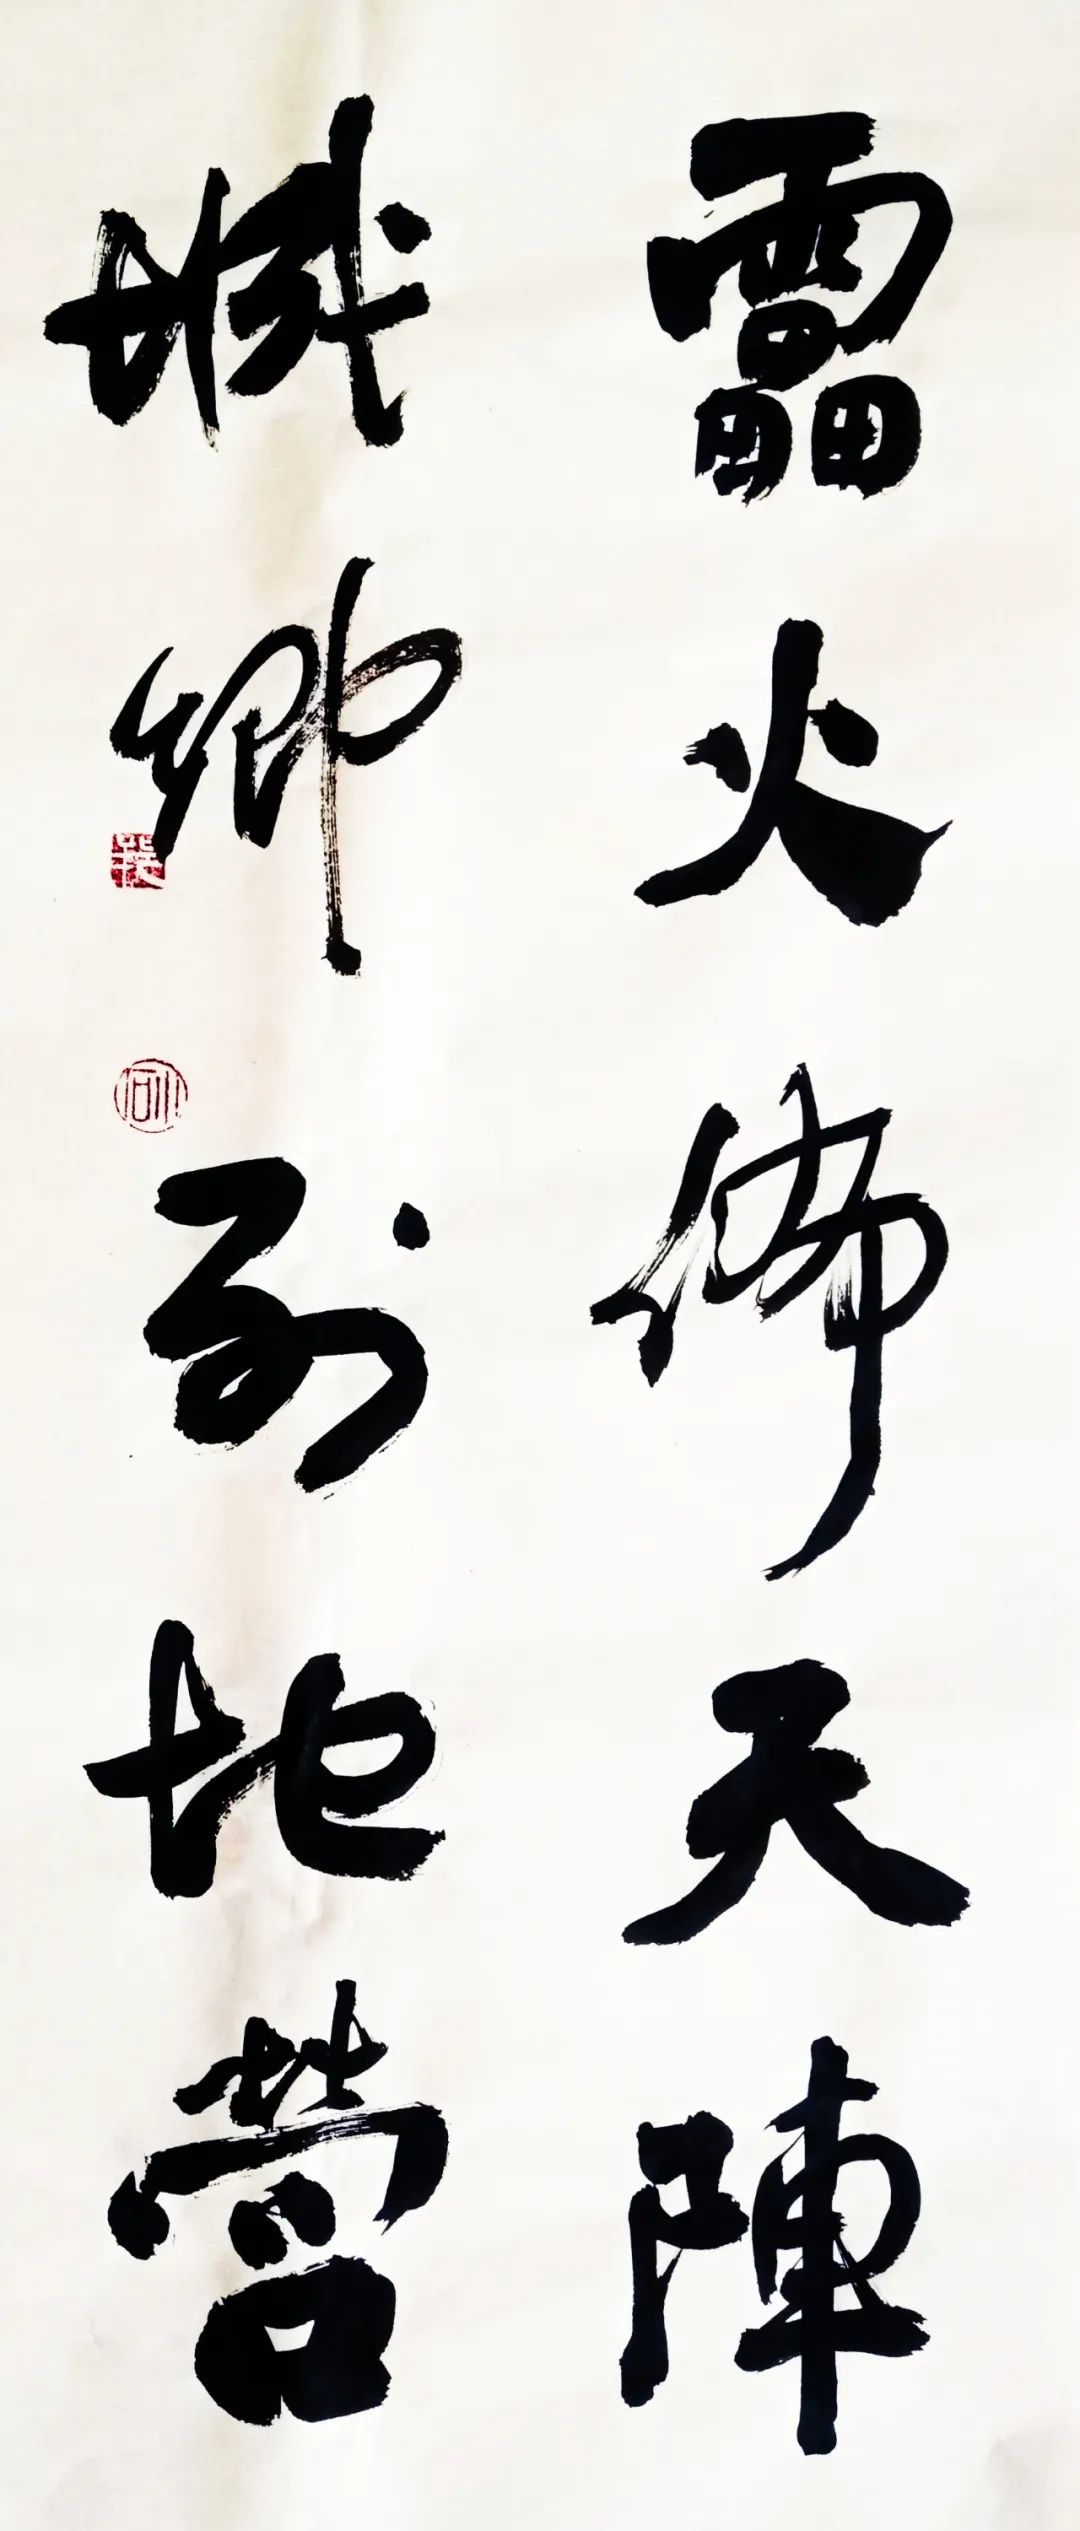 靁火佈天陣
城鄉列地營